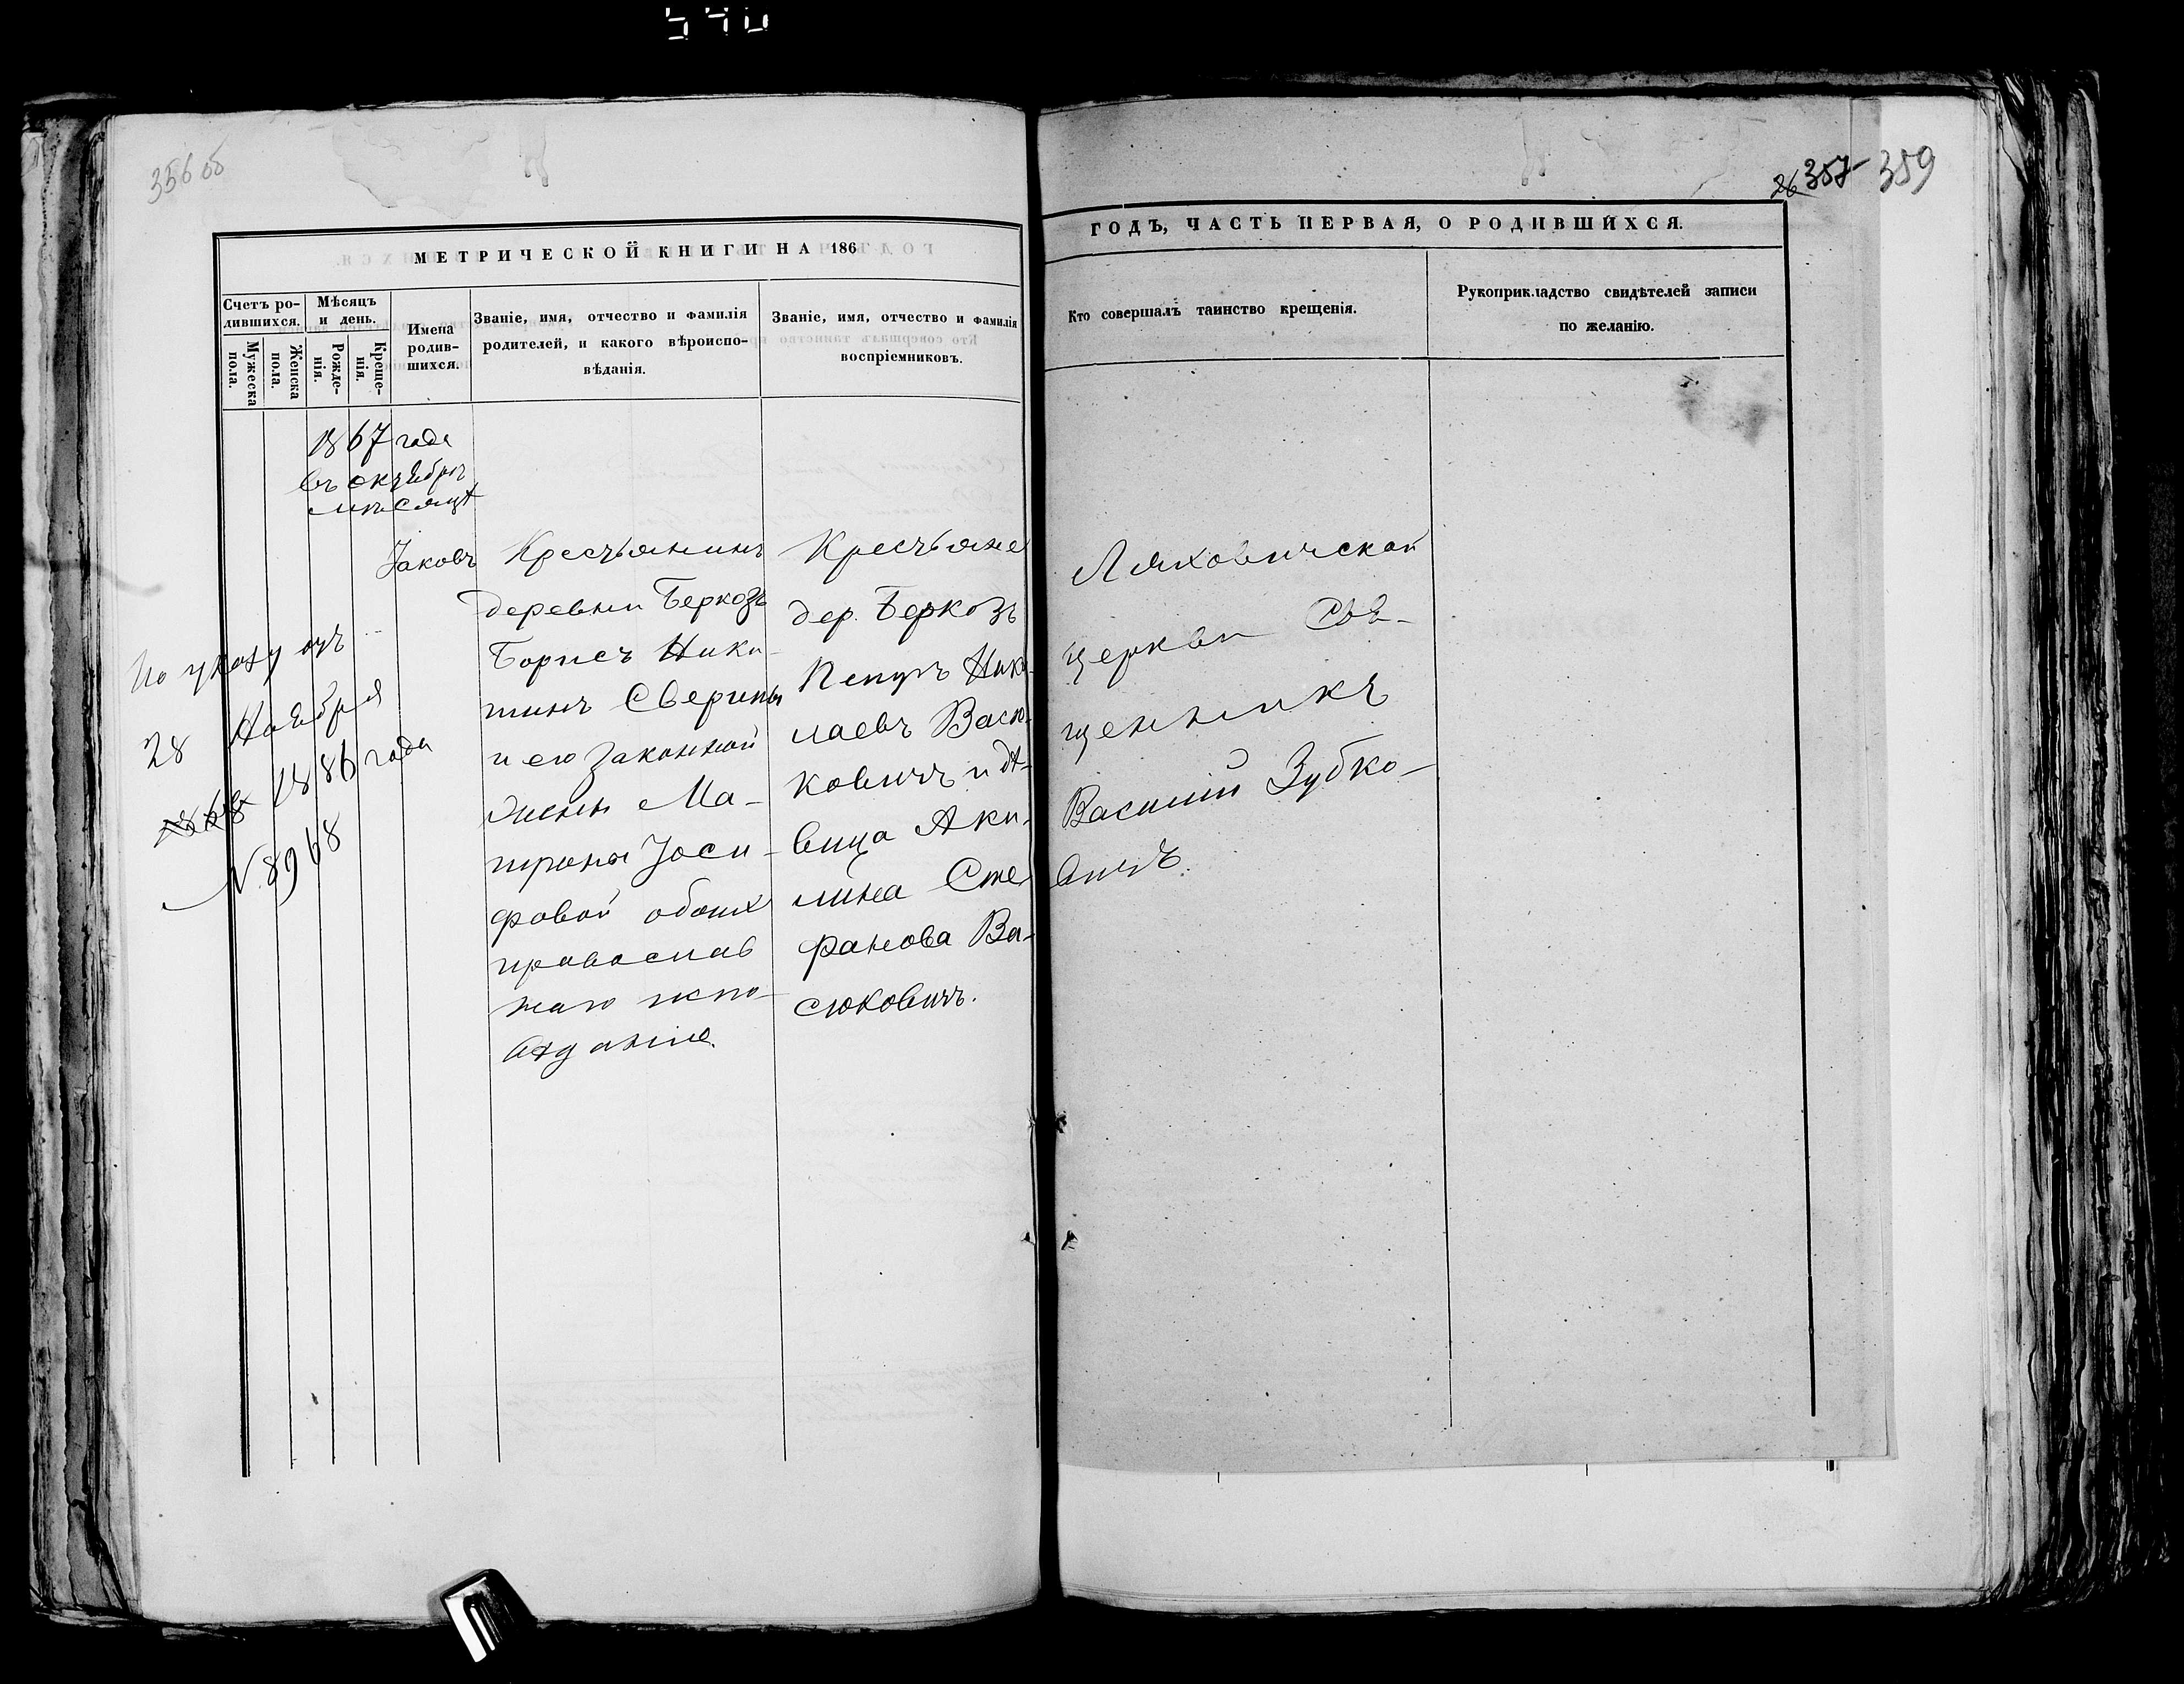 356 об
МЕТРИЧЕСКОЙ КНИГИ НА 186
Счетъ ро-
дившихся.
Мужеска
пола.
Женска
пола.
Мѣсяцъ
и день.
Рожде-
нія.
Креще-
нія.
Имена
родив-
шихся.
Званіе, имя, отчество и фамилія
родителей, и какого вѣроиспо-
вѣданія.
Званіе, имя, отчество и фамилія
воспріемниковъ.
1867 года
въ октябрѣ
мѣсяцѣ
По указу отъ
28 Ноября
1886 года
№ 8968
Іаковъ
Крестьянинъ
деревни Беркозъ
Борисъ Ники-
тинъ
и его законной
жены Ма-
троны Іоси-
фовой обоих
православ
наго испо-
вѣданія.
Крестьяне
дер. Беркозъ
Нико-
лаевъ Васю-
ковичъ и дѣ-
вица Аки-
лина Сте
фанова Ва-
сюковичъ.
26 357 359
ГОДЪ, ЧАСТЬ ПЕРВАЯ, О РОДИВШИХСЯ.
Кто совершалъ таинство крещенія.
Рукоприкладство свидѣтелей записи
по желанію.
Ляховичской
церкви Свя-
щенникъ
Василій Зубко-
вичъ.